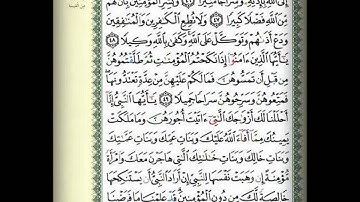 إِلَى ٱللَّهِ بِإِذْنِهِۦ وَسِرَاجًا مُّنِيرًا ٤٦ وَبَشِّرِ ٱلْمُؤْمِنِينَ بِأَنَّ لَهُم
مِّنَ ٱللَّهِ فَضْلًا كَبِيرًا ٤٧ وَلَا تُطِعِ ٱلْكَٰفِرِينَ وَٱلْمُنَٰفِقِينَ
وَدَعْ أَذَىٰهُمْ وَتَوَكَّلْ عَلَى ٱللَّهِ وَكَفَىٰ بِٱللَّهِ وَكِيلًا ٤٨
يَٰٓأَيُّهَا ٱلَّذِينَ ءَامَنُوٓا۟ إِذَا نَكَحْتُمُ ٱلْمُؤْمِنَٰتِ ثُمَّ طَلَّقْتُمُوهُنَّ
مِن قَبْلِ أَن تَمَسُّوهُنَّ فَمَا لَكُمْ عَلَيْهِنَّ مِنْ عِدَّةٍ تَعْتَدُّونَهَا
فَمَتِّعُوهُنَّ وَسَرِّحُوهُنَّ سَرَاحًا جَمِيلًا ٤٩ يَٰٓأَيُّهَا ٱلنَّبِىُّ إِنَّآ
أَحْلَلْنَا لَكَ أَزْوَٰجَكَ ٱلَّٰتِىٓ ءَاتَيْتَ أُجُورَهُنَّ وَمَا مَلَكَتْ
يَمِينُكَ مِمَّآ أَفَآءَ ٱللَّهُ عَلَيْكَ وَبَنَاتِ عَمِّكَ وَبَنَاتِ عَمَّٰتِكَ
وَبَنَاتِ خَالِكَ وَبَنَاتِ خَٰلَٰتِكَ ٱلَّٰتِى هَاجَرْنَ مَعَكَ وَٱمْرَأَةً
مُّؤْمِنَةً إِن وَهَبَتْ نَفْسَهَا لِلنَّبِىِّ إِنْ أَرَادَ ٱلنَّبِىُّ أَن يَسْتَنكِحَهَا
خَالِصَةً لَّكَ مِن دُونِ ٱلْمُؤْمِنِينَ قَدْ عَلِمْنَا مَا فَرَضْنَا